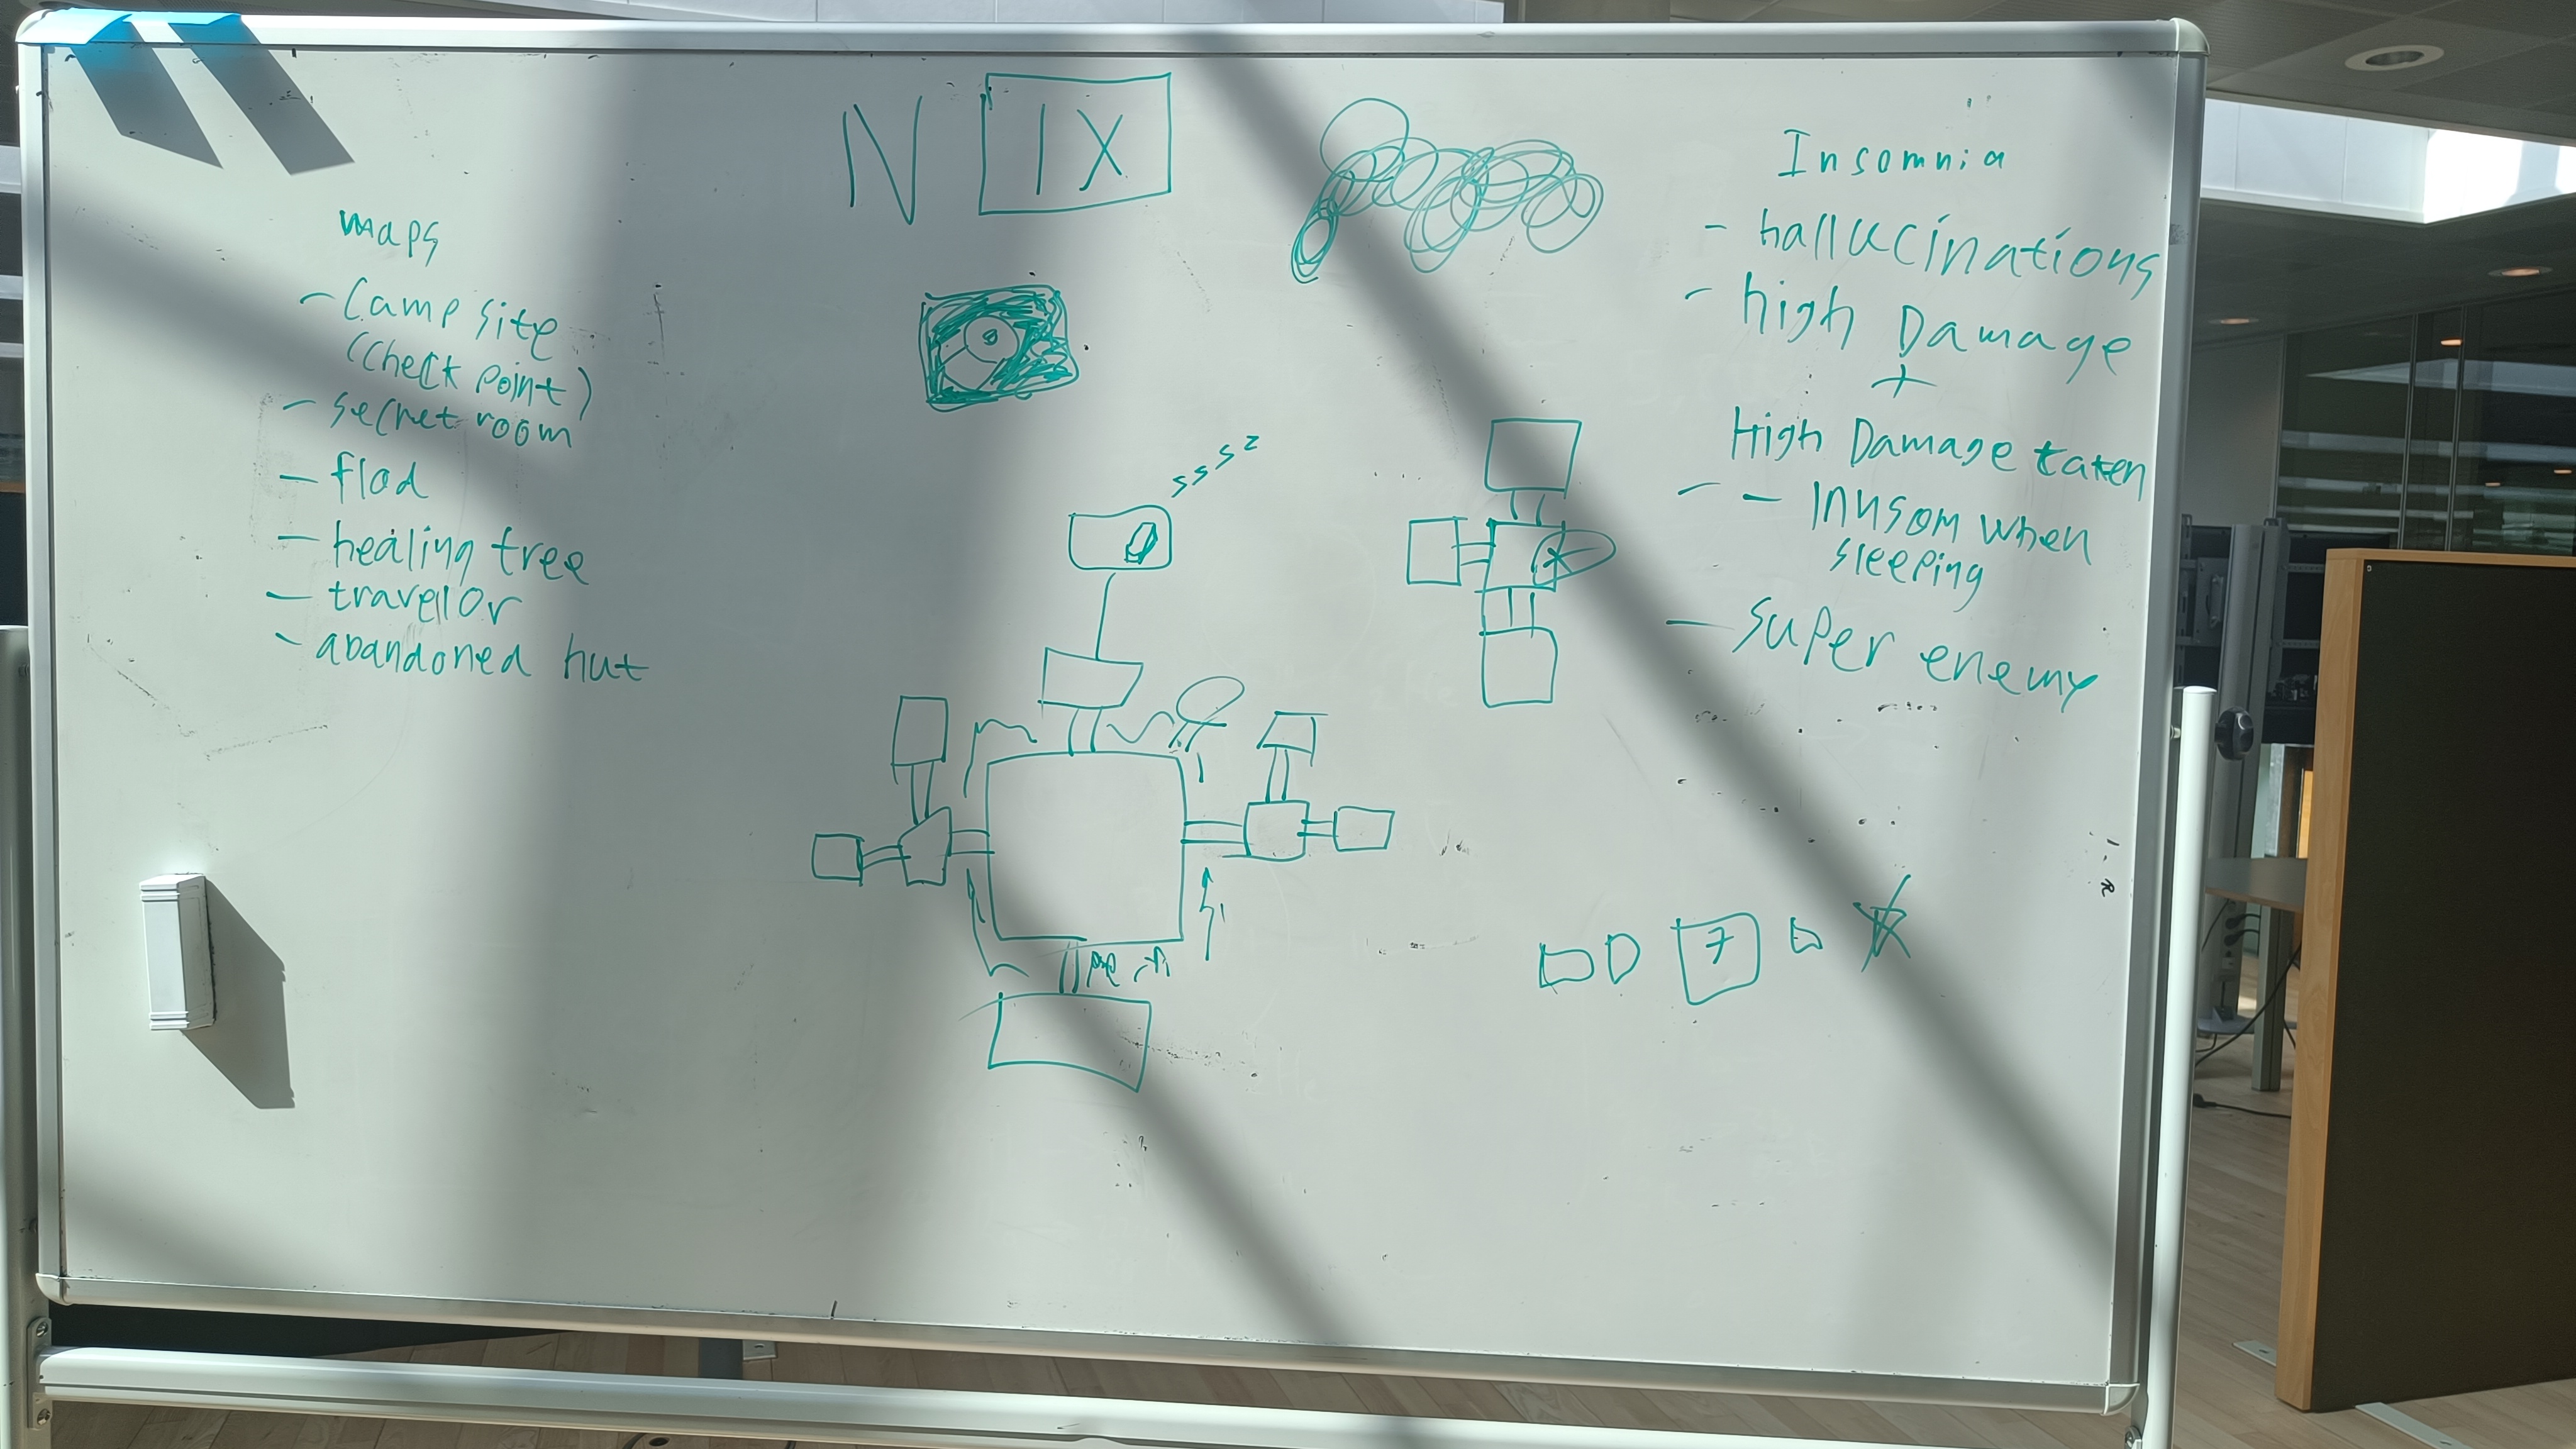 N IX
maps
- Camp site
(check point)
- secret room
- flod
- healing tree
- travellor
- abandoned hut
Insomnia
- hallucinations
- high Damage
+
High Damage taken
- - Inusom when
sleeping
- super enemy
s s s z
7